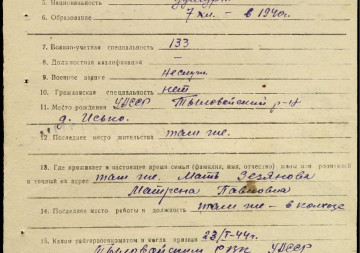 5. Национальность удмурт
6. Образование 7 кл. – в 1940г.
7. Военно-учетная специальность 133
8. Должностная квалификация –
9. Военное звание неслуж.
10. Гражданская специальность нет
11. Место рождения УАССР Тыловайский р-н
д. Исько.
12. Последнее место жительства там же.
13. Где проживает в настоящее время семья (фамилия, имя, отчество) жены или родителей
и точный их адрес там же. Мать Зезянова
Матрена Павловна
14. Последнее место работы и должность там же – в колхозе
15. Каким райгорвоенкоматом и когда призван 23/I-44г.
Тыловайским РВК УАССР